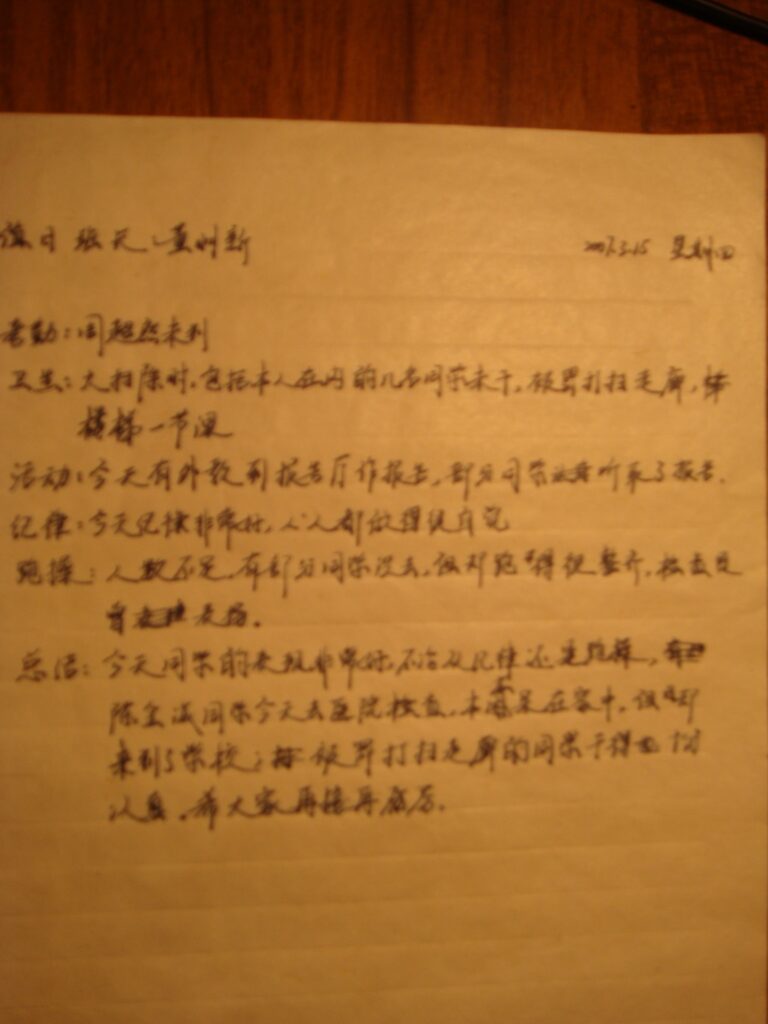 值日 张天、董川新 2007.3.15 星期四
考勤：周超然未到
卫生：大扫除时，包括本人在内的几名同学未干，被罚打扫走廊，
楼梯一节课
活动：今天有外教到报告厅作报告，部分同学听取了报告．
纪律：今天纪律非常好，人人都做得很自觉
跑操：人数不足，有部分同学没去，但却跑得很整齐，检查员
表扬．
总结：今天同学的表现非常好，不论从纪律还是跑操，
同学今天去医院检查，本应呆在家中，但却
来到了学校；被罚打扫走廊的同学干得十分
认真．希大家再接再厉．